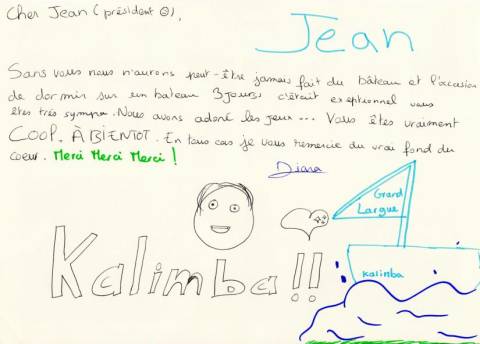 Cher Jean (président ☺),
Jean
Sans vous nous n'aurons peut-être jamais fait du bâteau et l'occasion
de dormir sur un bateau 3 jours, c'était exeptionnel vous
êtes très sympa. Nous avons adoré les jeux... Vous êtes vraiment
COOP. À BIENTOT. En tous cas je vous remercie du vrai fond du
coeur. Merci Merci Merci !
Diana
Grand
Largue
Kalimba
Kalimba !!